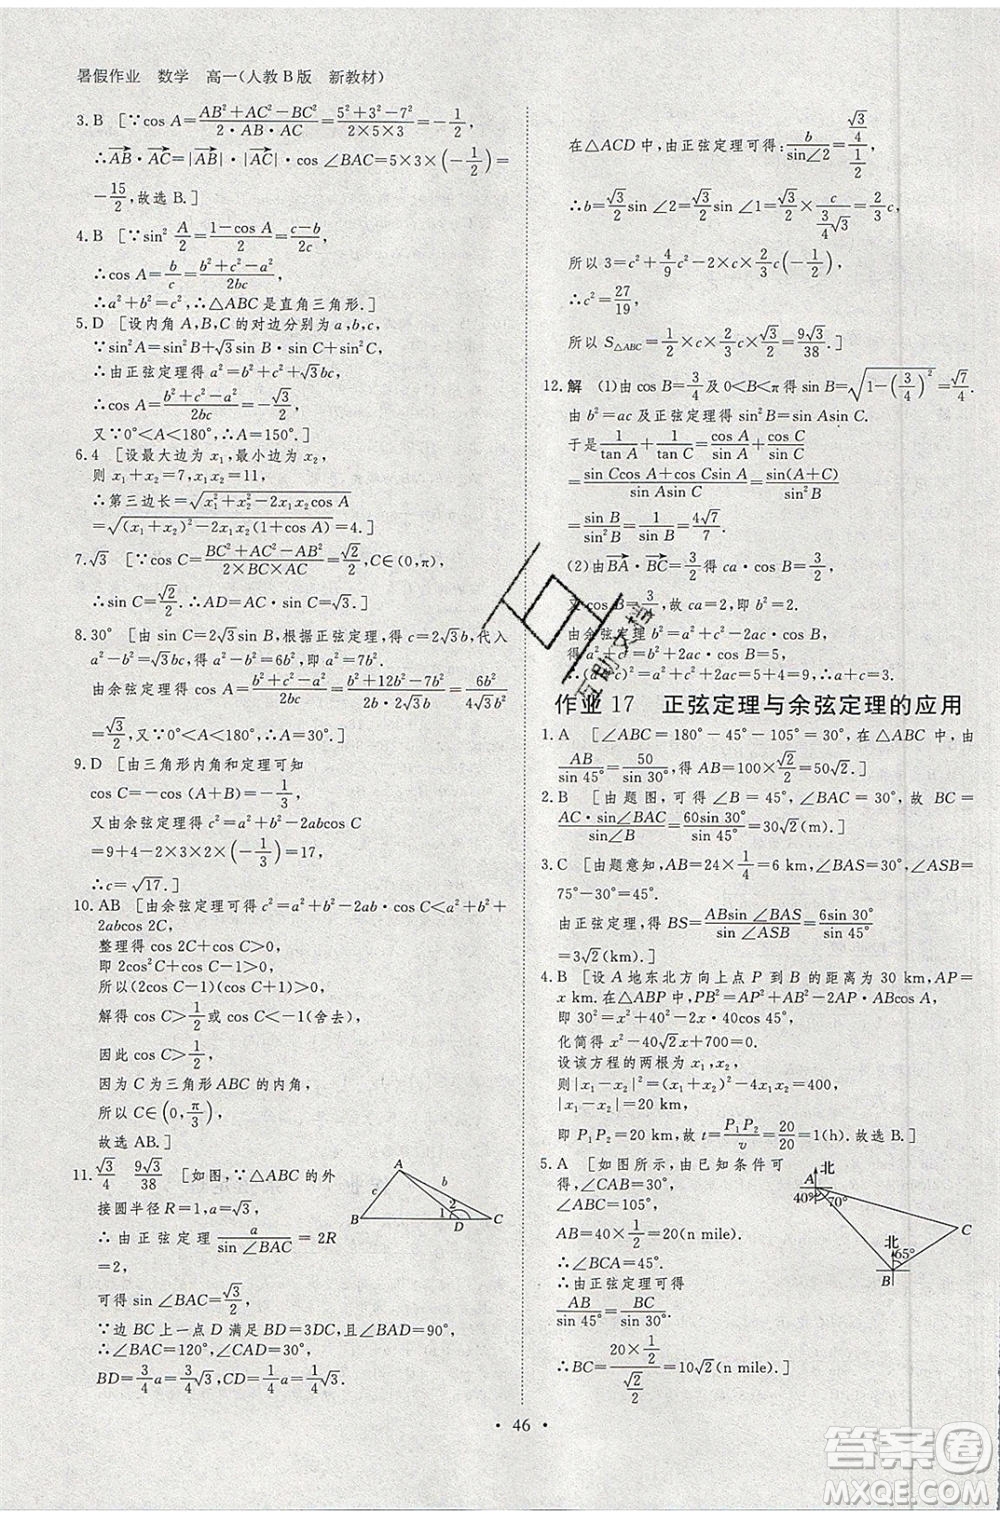 暑假作业　数学　高一(人教B版　新教材)
3.B　[∵cos A=(AB²+AC²-BC²)/(2·AB·AC)=(5²+3²-7²)/(2×5×3)=-1/2,
∴AB→·AC→=|AB→|·|AC→|·cos ∠BAC=5×3×(-1/2)=
-15/2,故选B.]
4.B　[∵sin² A/2=(1-cos A)/2=(c-b)/2c,
∴cos A=b/c=(b²+c²-a²)/2bc,
∴a²+b²=c²,∴△ABC是直角三角形.]
5.D　[设内角A,B,C的对边分别为a,b,c,
∵sin²A-sin²C=(√3sin B+sin C)sin B,
∴由正弦定理得a²=b²+c²+√3bc,
∴cos A=(b²+c²-a²)/2bc=-√3/2,
又∵0°<A<180°,∴A=150°.]
6.4　[设最大边为x₁,最小边为x₂,
则x₁+x₂=7,x₁x₂=11,
∴第三边长=√(x₁²+x₂²-2x₁x₂cos A)
=√((x₁+x₂)²-2x₁x₂(1+cos A))=4.]
7.√3　[∵cos C=(BC²+AC²-AB²)/(2×BC×AC)=√2/2,C∈(0,π),
∴sin C=√2/2.∴AD=AC·sin C=√3.]
8.30°　[由sin C=2√3sin B,根据正弦定理得c=2√3b,代入
a²-b²=√3bc得a²-b²=6b²,即a²=7b².
由余弦定理得cos A=(b²+c²-a²)/2bc=(b²+12b²-7b²)/(2b·2√3b)=6b²/4√3b²
=√3/2.∵0°<A<180°,∴A=30°.]
9.D　[由三角形内角和定理可知
cos C=-cos(A+B)=-1/3,
又由余弦定理得c²=a²+b²-2abcos C
=9+4-2×3×2×(-1/3)=17,
∴c=√17.]
10.AB　[由余弦定理可得c²=a²+b²-2ab·cos C<a²+b²+
2abcos 2C,
整理得cos 2C+cos C>0,
即2cos²C+cos C-1>0,
所以(2cos C-1)(cos C+1)>0,
解得cos C>1/2或cos C<-1(舍去),
因此cos C>1/2.
因为C为三角形ABC的内角,
所以C∈(0,π/3).
故选AB.]
11.√3/4　9√3/38　[如图,∵△ABC的外
接圆半径R=1,a=√3,
∴由正弦定理a/sin∠BAC=2R
=2,
可得sin ∠BAC=√3/2,
∵边BC上一点D满足BD=3DC,且∠BAD=90°,
∴∠BAC=120°,∠CAD=30°,
BD=3/4 a=3/4 √3,CD=1/4 a=1/4 √3.
A
c
b
1
2
B
D
C
在△ACD中,由正弦定理可得:b/sin∠2=(√3/4)/(1/2),
∴b=√3/2 sin ∠2=√3/2 sin ∠1=√3/2×c/(3/4 √3),
所以3=c²+4/9 c²-2c×2/3 c×(-1/2),
∴c²=27/19,
所以S△ABC=1/2×c×2/3 c×√3/2=9√3/38.]
12.解　(1)由cos B=3/4及0<B<π得sin B=√(1-(3/4)²)=√7/4.
由b²=ac及正弦定理得sin²B=sin Asin C.
于是1/tan A+1/tan C=cos A/sin A+cos C/sin C
=(sin Ccos A+cos Csin A)/(sin Asin C)=sin(A+C)/sin²B
=sin B/sin²B=1/sin B=4√7/7.
(2)由BA→·BC→=3/2得ca·cos B=3/2,
又cos B=3/4,故ca=2,即b²=2.
由余弦定理b²=a²+c²-2ac·cos B得
a²+c²=b²+2ac·cos B=5,
∴(a+c)²=a²+c²+2ac=5+4=9,∴a+c=3.
作业17　正弦定理与余弦定理的应用
1.A　[∠ABC=180°-45°-105°=30°,在△ABC中,由
AB/sin 45°=50/sin 30°,得AB=100×√2/2=50√2.]
2.B　[由题图,可得∠B=45°,∠BAC=30°,故BC=
AC·sin∠BAC/sin∠B=60sin 30°/sin 45°=30√2(m).]
3.C　[由题意知,AB=24×1/4=6 km,∠BAS=30°,∠ASB=
75°-30°=45°.
由正弦定理,得BS=ABsin ∠BAS/sin ∠ASB=6sin 30°/sin 45°
=3√2(km).]
4.B　[设A地东北方向上点P到B的距离为30 km,AP=
x.在△ABP中,PB²=AP²+AB²-2AP·ABcos A,
即30²=x²+40²-2x·40cos 45°,
化简得x²-40√2x+700=0.
设该方程的两根为x₁,x₂,
则|x₁-x₂|²=(x₁+x₂)²-4x₁x₂=400,
|x₁-x₂|=20,
即P₁P₂=20 km,故t=P₁P₂/v=20/20=1(h).故选B.]
5.A　[如图所示,由已知条件可
得,∠CAB=30°,∠ABC=105°,
AB=40×1/2=20(n mile).
∴∠BCA=45°.
∴由正弦定理可得
AB/sin 45°=BC/sin 30°.
∴BC=(20×1/2)/(√2/2)=10√2(n mile).]
北
A
40°
70°
C
北
65°
B
• 46 •
互助文档
答案圈
MXQE.COM